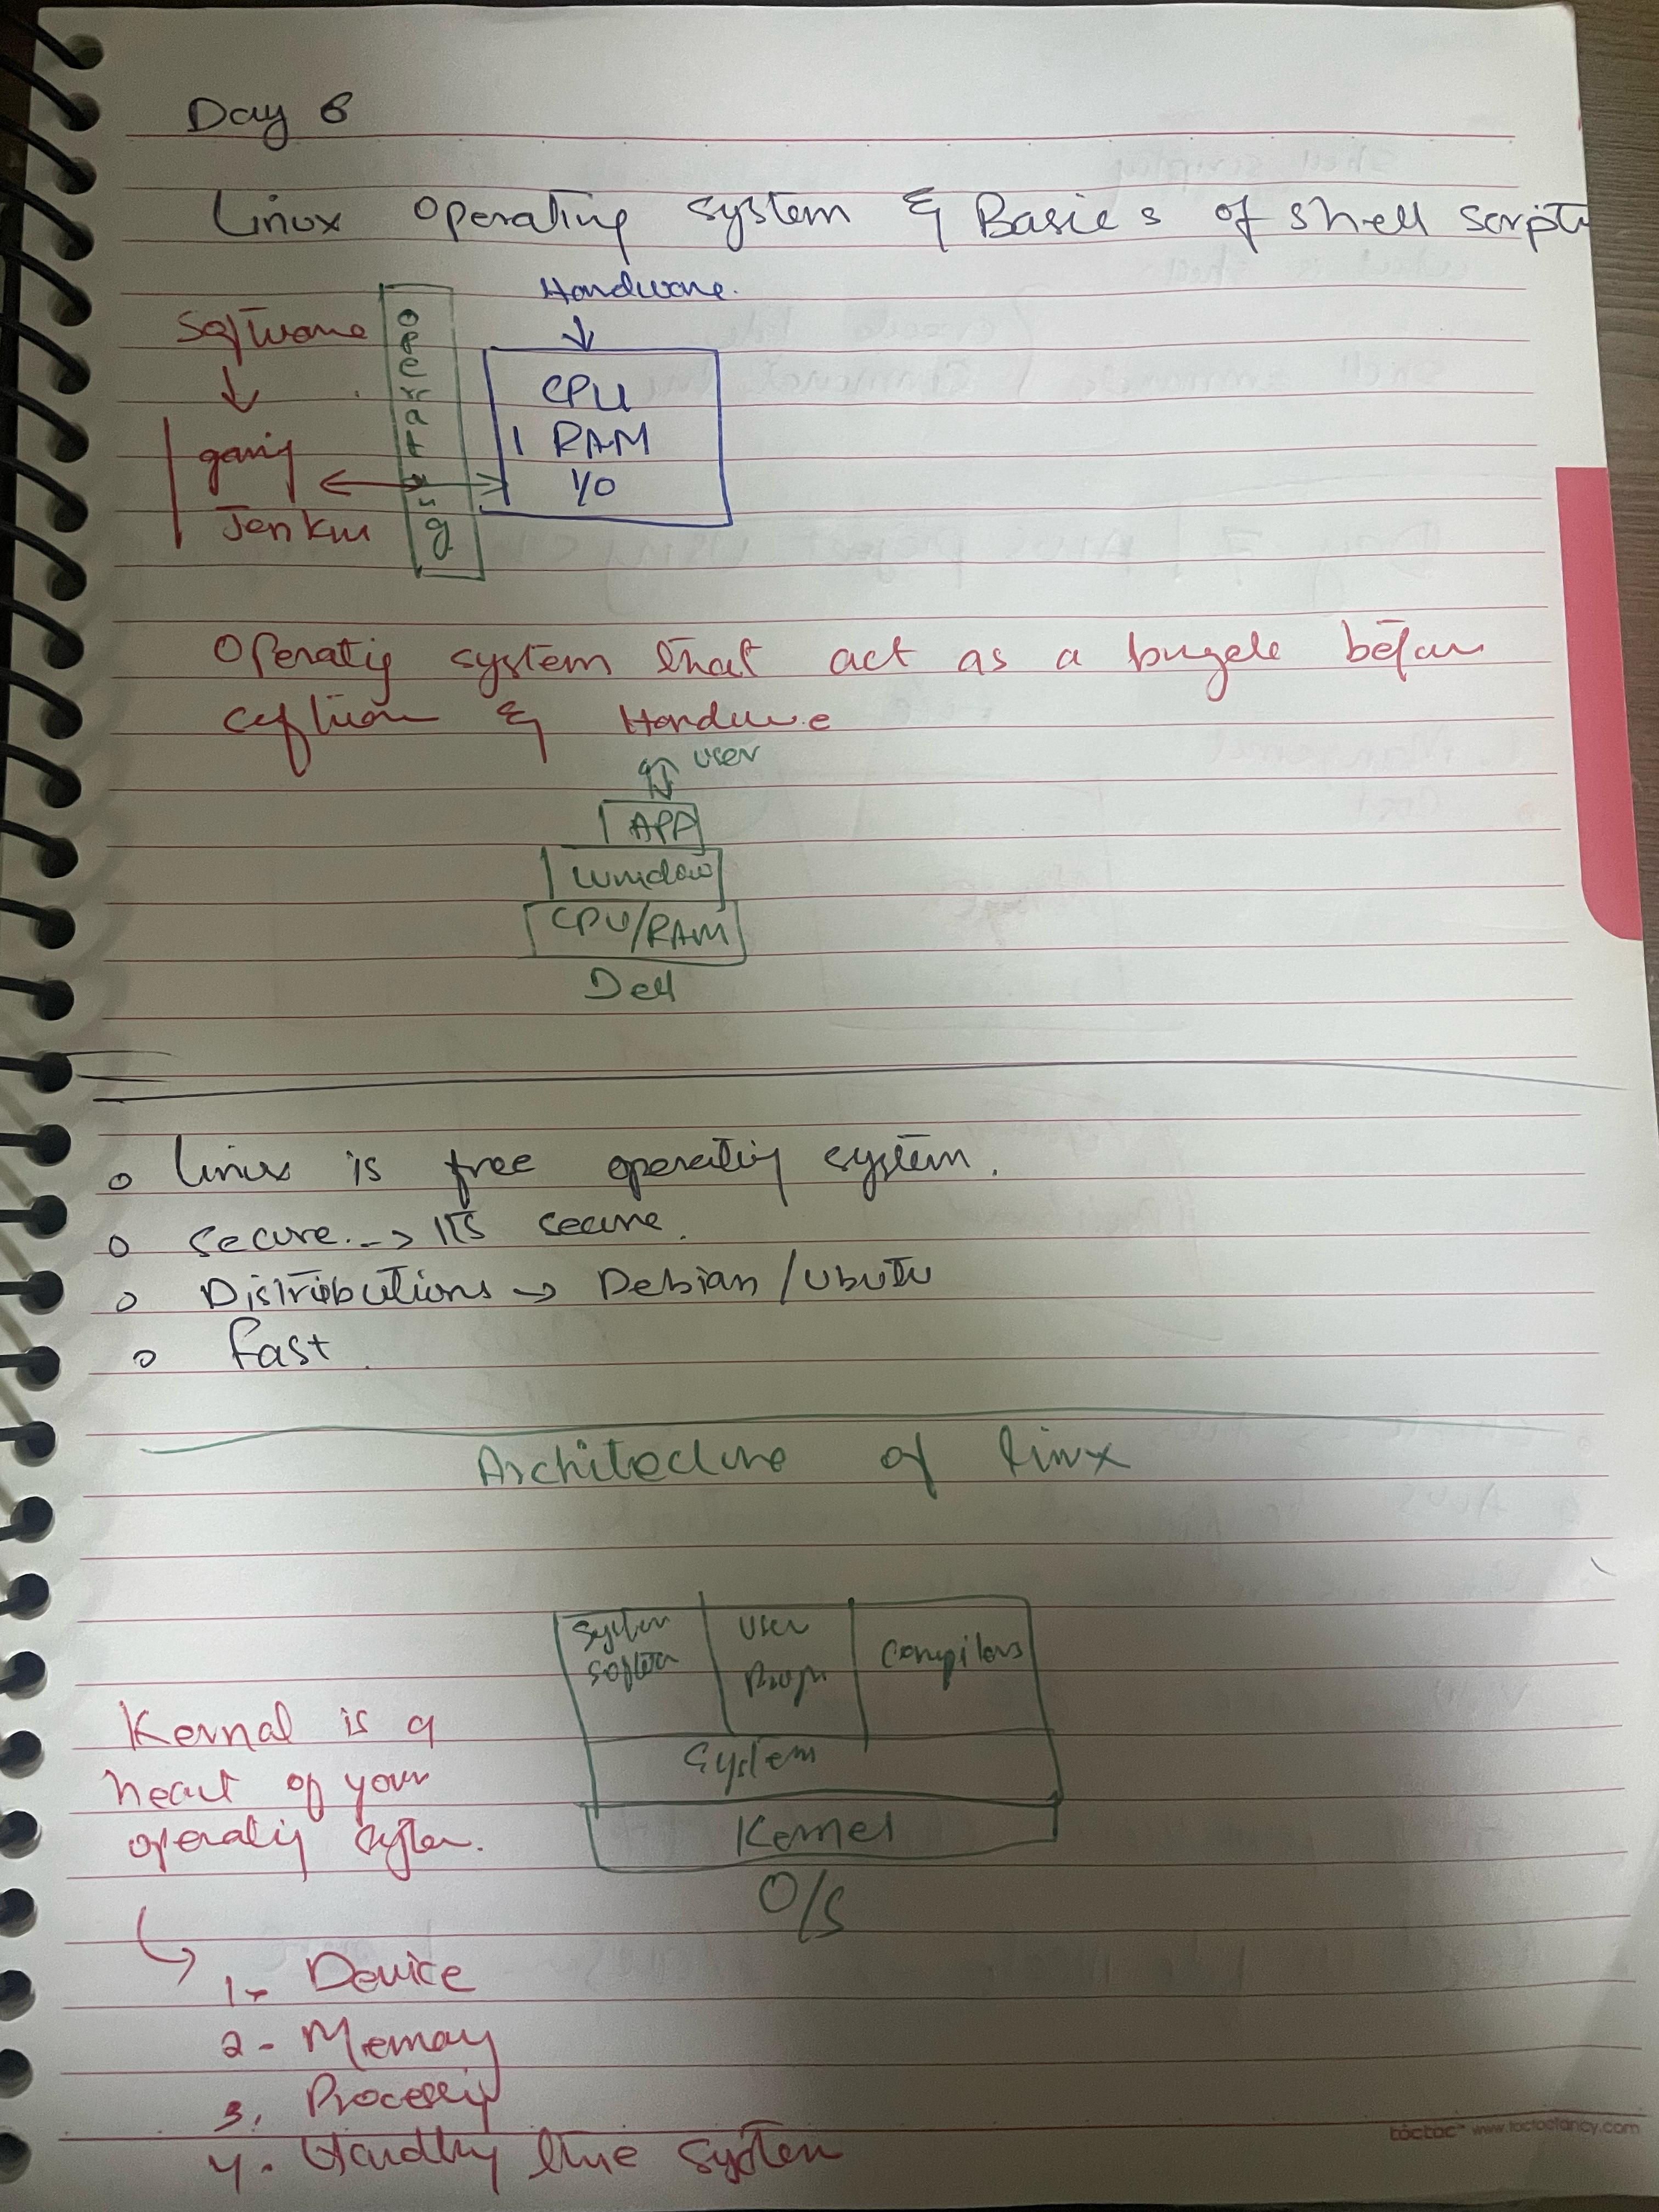 Day 6
Linux operating system & Basics of shell scripti
Hardware.
Software
operating
CPU
RAM
I/O
Jenkin
Operatig system that act as a before
& Hardwre
user
APP
window
CPU/RAM
Dell
o Linux is free operating system.
o secure. -> Its secure.
o Distributions -> Debian/Ubutu
o Fast.
Architecture of linux
System User Compilers
System
Kernel
O/S
Kernal is a
heart of your
operatig system.
1- Device
2- Memory
3. Processig
4. system
toctoc www.toctocfancy.com